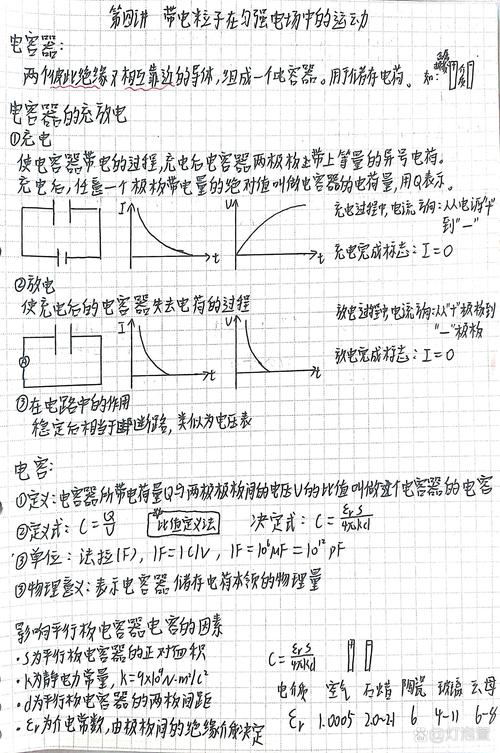 第四讲 带电粒子在匀强电场中的运动
电容器:
两个彼此绝缘又相互靠近的导体,组成一个电容器。用于储存电荷。 如:
电容器的充放电
①充电
使电容器带电的过程,充电后电容器两极板上带上等量的异号电荷。
充电后,任意一个极板带电量的绝对值叫做电容器的电荷量,用Q表示。
I
t
U
t
充电过程中,电流方向:从电源"+"
到"-"
充电完成标志:I=0
②放电
使充电后的电容器失去电荷的过程
A
I
t
U
t
放电过程中电流方向:从"+"极板到
"-"极板
放电完成标志:I=0
③在电路中的作用
稳定后相当于断路,类似为电压表
电容:
①定义:电容器所带电荷量Q与两极板间的电压U的比值叫做这个电容器的电容
②定义式:C=Q/U 比值定义法 决定式:C=εrS/4πkd
③单位:法拉(F),1F=1C/V,1F=10⁶μF=10¹²pF
④物理意义:表示电容器储存电荷本领的物理量
影响平行板电容器电容的因素
·S为平行板电容器的正对面积
·k为静电力常量,k=9×10⁹N·m²/C²
·d为平行板电容器的两板间距
·εr为介电常数,由极板间的绝缘介质决定
C=εrS/4πkd
电介质 空气 石蜡 陶瓷 玻璃 云母
εr 1.0005 2.0-2.1 6 4-11 6-8